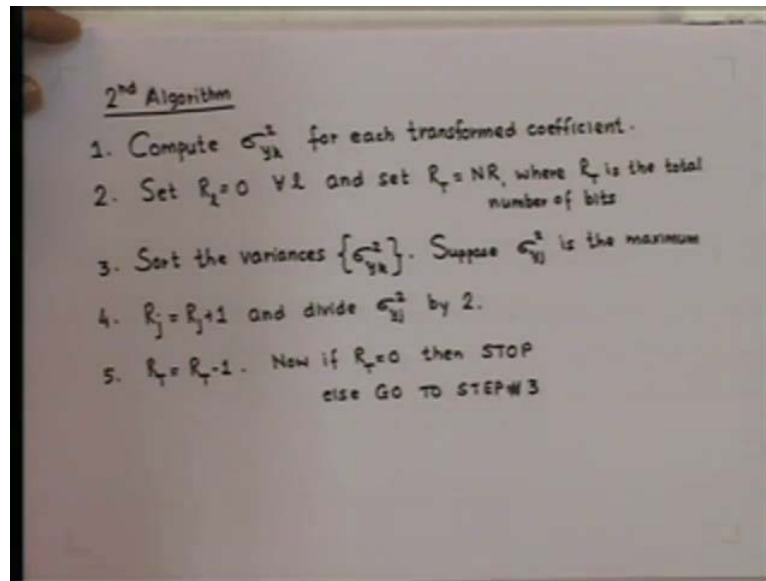 2nd Algorithm
1. Compute σ²yk for each transformed coefficient.
2. Set Rl=0 ∀l and set RT = NR, where RT is the total
number of bits
3. Sort the variances {σ²yk}. Suppose σ²yj is the maximum
4. Rj = Rj+1 and divide σ²yj by 2.
5. RT = RT-1. Now if RT=0 then STOP
else GO TO STEP# 3